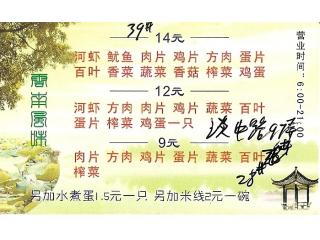 39#
14元
河虾 鱿鱼 肉片 鸡片 方肉 蛋片
百叶 香菜 蔬菜 香菇 榨菜 鸡蛋
12元
河虾 方肉 肉片 鸡片 蔬菜 百叶
蛋片 榨菜 鸡蛋一只
9元
方肉 肉片 鸡片 蛋片 蔬菜 百叶
榨菜
另加水煮蛋1.5元一只 另加米线2元一碗
营业时间：6:00-21:00
云南风味
28#